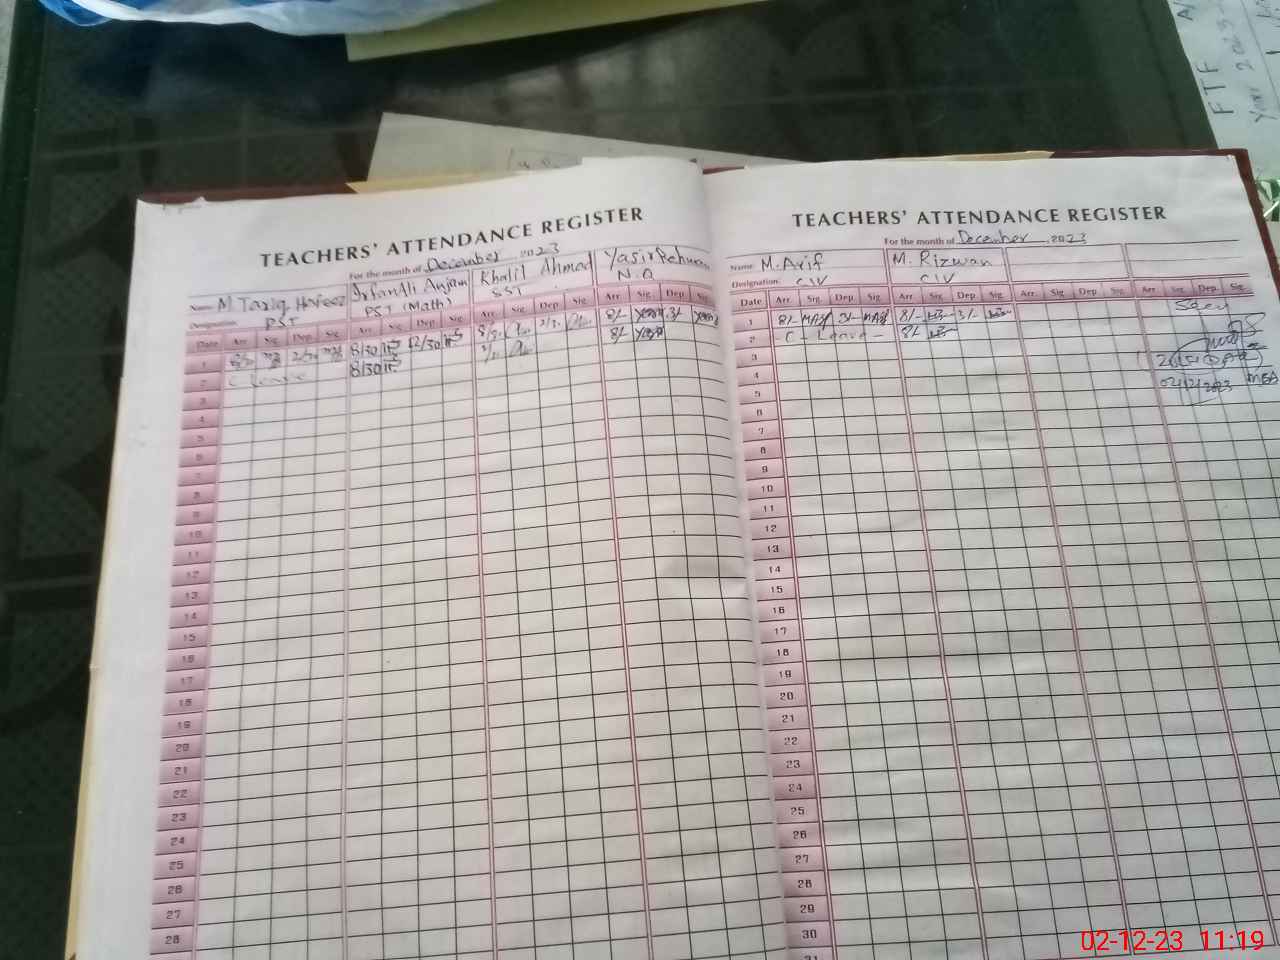 FTF
Year 2023
TEACHERS' ATTENDANCE REGISTER
For the month of December 2023
Name M.Tariq Hafeez Irfan Ali Anjam Khalil Ahmad Yasir Rehman
Designation PST PST (Math) SST N.Q
Date Arr Sig Dep Sig Arr Sig Dep Sig Arr Sig Dep Sig Arr Sig Dep Sig
1 8/30 2/30 8/30 12/30 8/3. 2/3. 8/- Yasir 3/- Yasir
2 C Leave 8/30 8/- Yasir
3
4
5
6
7
8
9
10
11
12
13
14
15
16
17
18
19
20
21
22
23
24
25
26
27
28
TEACHERS' ATTENDANCE REGISTER
For the month of December 2023
Name M.Arif M. Rizwan
Designation CIV CIV
Date Arr Sig Dep Sig Arr Sig Dep Sig Arr Sig Dep Sig Arr Sig Dep Sig
1 8/- MArf 3/- MArf 8/- 3/-
2 - C - Leave - 8/-
3
4
5
02/12/2023 MEA
6
7
8
9
10
11
12
13
14
15
16
17
18
19
20
21
22
23
24
25
26
27
28
29
30
31
02-12-23 11:19